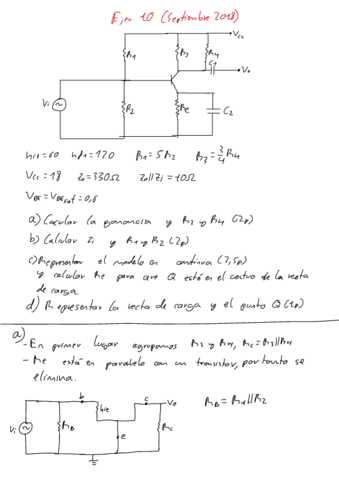 Ejer 10 (Septiembre 2018)
Vcc
R1 R3 R4
C1
Vo
Vi
R2 Re C2
hie=60 hfe=120 R1=5R2 R3=3/4 R4
Vcc=18 Zo=330Ω Zo||Zi=10Ω
VBE=VBEsat=0,6
a) Calcular la ganancia y R3 y R4 (2p)
b) Calcular Zi y R1 y R2 (2p)
c) Representar el modelo en continua (2,5p)
y calcular Re para que Q esté en el centro de la recta
de carga.
d) Representar la recta de carga y el punto Q (1p)
a)
- En primer lugar agrupamos R3 y R4, Rc=R3||R4
- Re está en paralelo con un transistor, por tanto se
elimina.
b c Vo
hie
Vi RB e Rc
RB=R1||R2